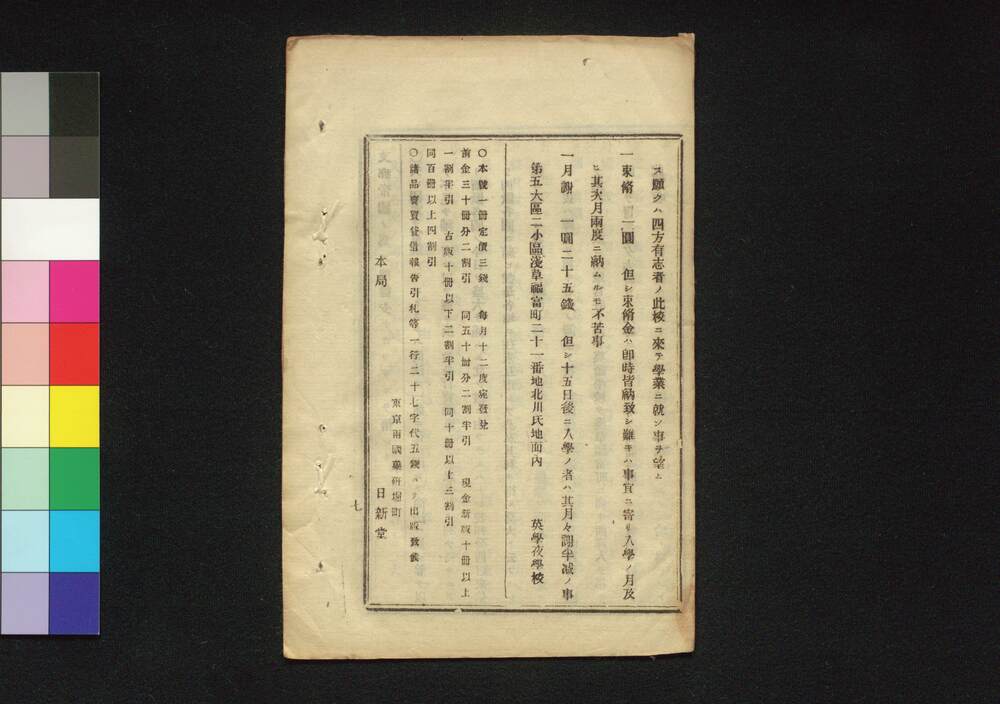 ス願クハ四方有志者ノ此校ニ來テ學業ニ就ン事ヲ望ム
一束脩 一圓 但シ束脩金ハ即時皆納致シ難キハ事宜ニ寄リ入學ノ月及
ヒ其次月兩度ニ納ムルモ不苦事
一月謝 一圓二十五錢 但シ十五日後ニ入學ノ者ハ其月々謝半減ノ事
第五大區二小區淺草福富町二十一番地北川氏地面內 英學夜學校
〇本號一冊定價三錢 每月十二度宛發兌
前金三十冊分二割引 同五十冊分二割半引 現金新版十冊以上
一割半引 古版十冊以下二割半引 同十冊以上三割引
同百冊以上四割引
〇諸品賣買貸借報告引札等一行二十七字代五錢ニテ出版致候
東京兩國藥研堀町
本局 日新堂
七